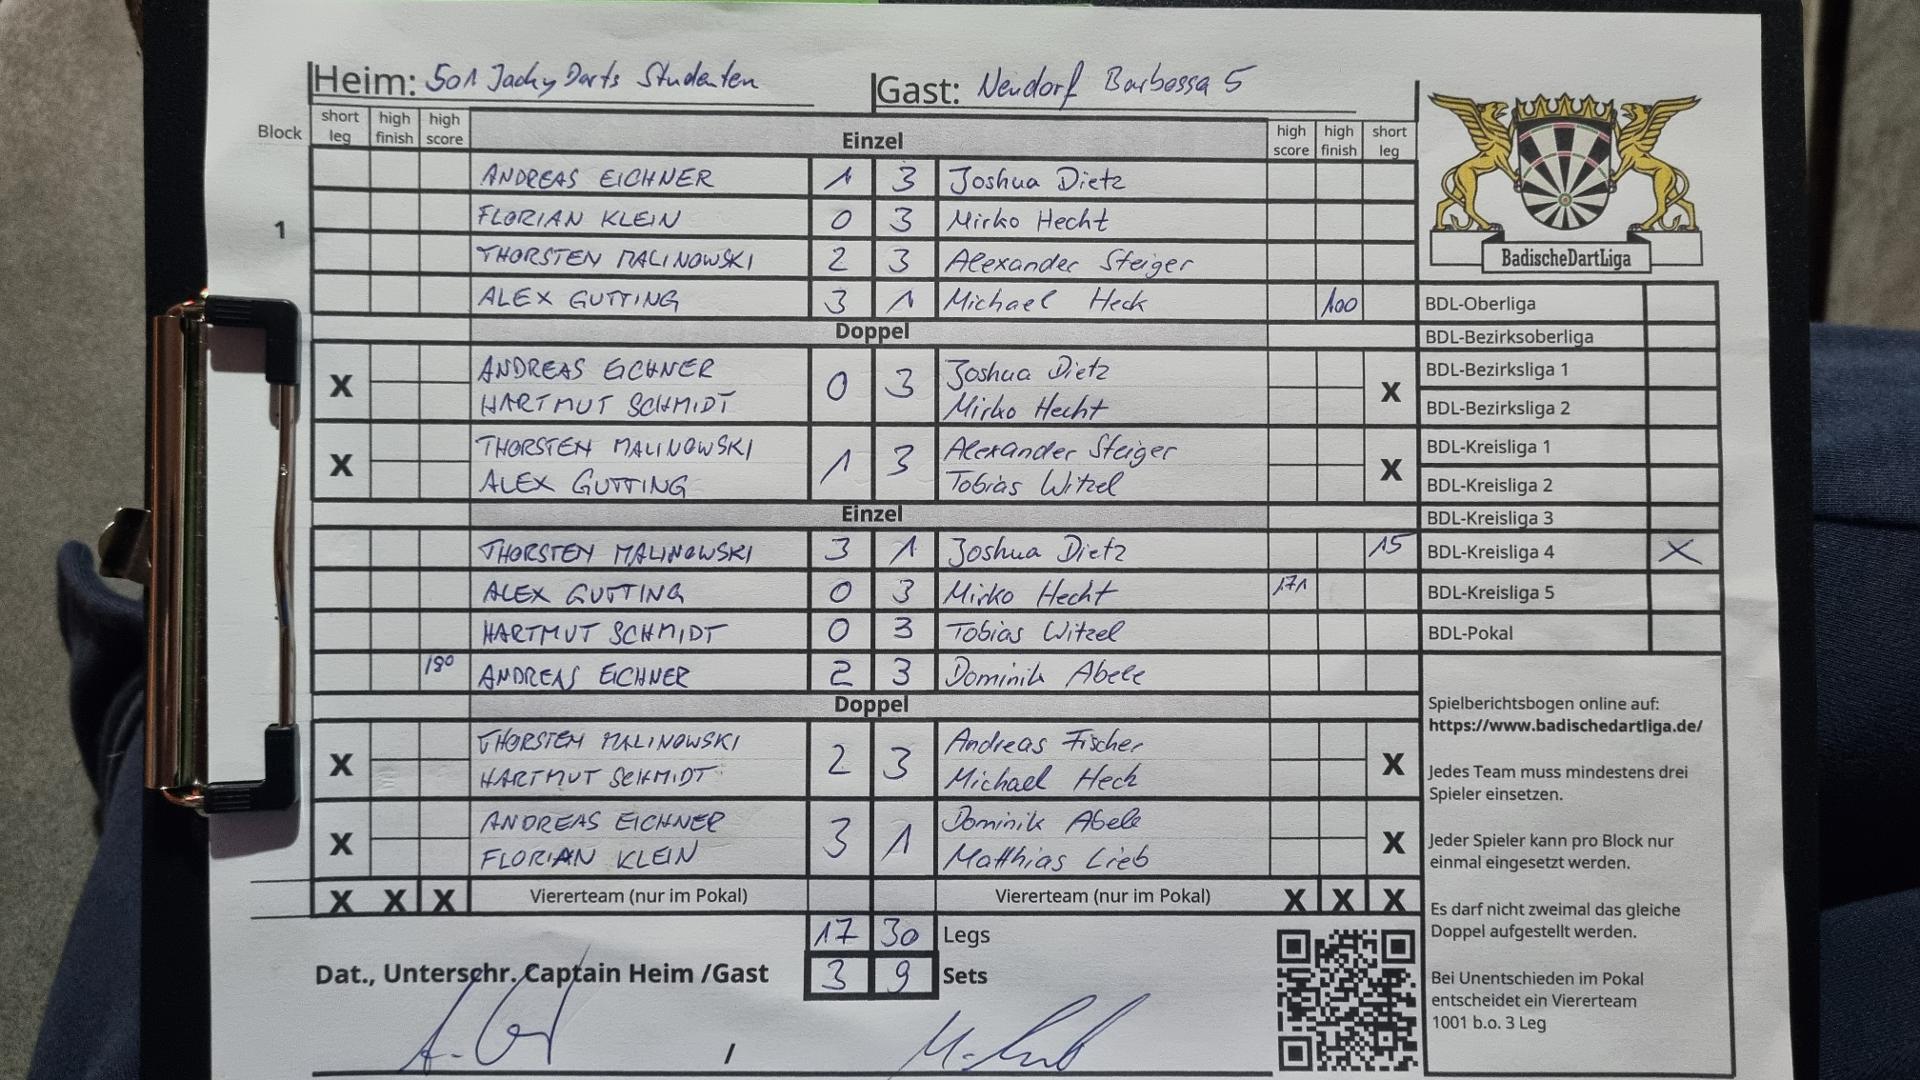 Heim: 501 Jacky Darts Studenten Gast: Neudorf Barbossa 5
Block short leg high finish high score Einzel high score high finish short leg
1
ANDREAS EICHNER 1 3 Joshua Dietz
FLORIAN KLEIN 0 3 Mirko Hecht
THORSTEN MALINOWSKI 2 3 Alexander Steiger
ALEX GUTTING 3 1 Michael Heck 100
Doppel
X ANDREAS EICHNER 0 3 Joshua Dietz X
HARTMUT SCHMIDT Mirko Hecht
X THORSTEN MALINOWSKI 1 3 Alexander Steiger X
ALEX GUTTING Tobias Witzel
Einzel
THORSTEN MALINOWSKI 3 1 Joshua Dietz 15
ALEX GUTTING 0 3 Mirko Hecht 171
HARTMUT SCHMIDT 0 3 Tobias Witzel
180 ANDREAS EICHNER 2 3 Dominik Abele
Doppel
X THORSTEN MALINOWSKI 2 3 Andreas Fischer X
HARTMUT SCHMIDT Michael Heck
X ANDREAS EICHNER 3 1 Dominik Abele X
FLORIAN KLEIN Matthias Lieb
X X X Viererteam (nur im Pokal) Viererteam (nur im Pokal) X X X
17 30 Legs
Dat., Unterschr. Captain Heim /Gast 3 9 Sets
/
BadischeDartLiga
BDL-Oberliga
BDL-Bezirksoberliga
BDL-Bezirksliga 1
BDL-Bezirksliga 2
BDL-Kreisliga 1
BDL-Kreisliga 2
BDL-Kreisliga 3
BDL-Kreisliga 4 X
BDL-Kreisliga 5
BDL-Pokal
Spielberichtsbogen online auf:
https://www.badischedartliga.de/
Jedes Team muss mindestens drei
Spieler einsetzen.
Jeder Spieler kann pro Block nur
einmal eingesetzt werden.
Es darf nicht zweimal das gleiche
Doppel aufgestellt werden.
Bei Unentschieden im Pokal
entscheidet ein Viererteam
1001 b.o. 3 Leg